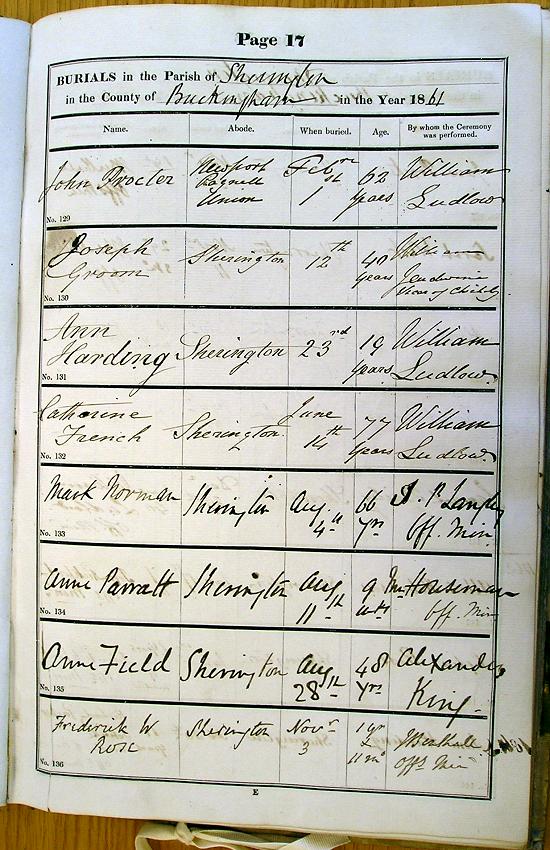 Page 17
BURIALS in the Parish of Sherington
in the County of Buckingham in the Year 1861
Name. Abode. When buried. Age. By whom the Ceremony was performed.
John Procter Newport Pagnell Union Feb 1st 62 Years William Ludlow
No. 129
Joseph Groom Sherington 12th 40 years William
No. 130
Ann Harding Sherington 23rd 19 Years William Ludlow
No. 131
Catherine French Sherington June 14th 77 Years William Ludlow
No. 132
Mark Norman Sherington Aug 4th 66 Yrs Langley Off. Min
No. 133
Anne Parratt Sherington Aug 11th 9 Houseman Off. Min
No. 134
Anne Field Sherington Aug 28th 48 Yrs Alexander King
No. 135
Frederick W Rose Sherington Novr 3 1 yr & 11 mo Off. Min
No. 136
E